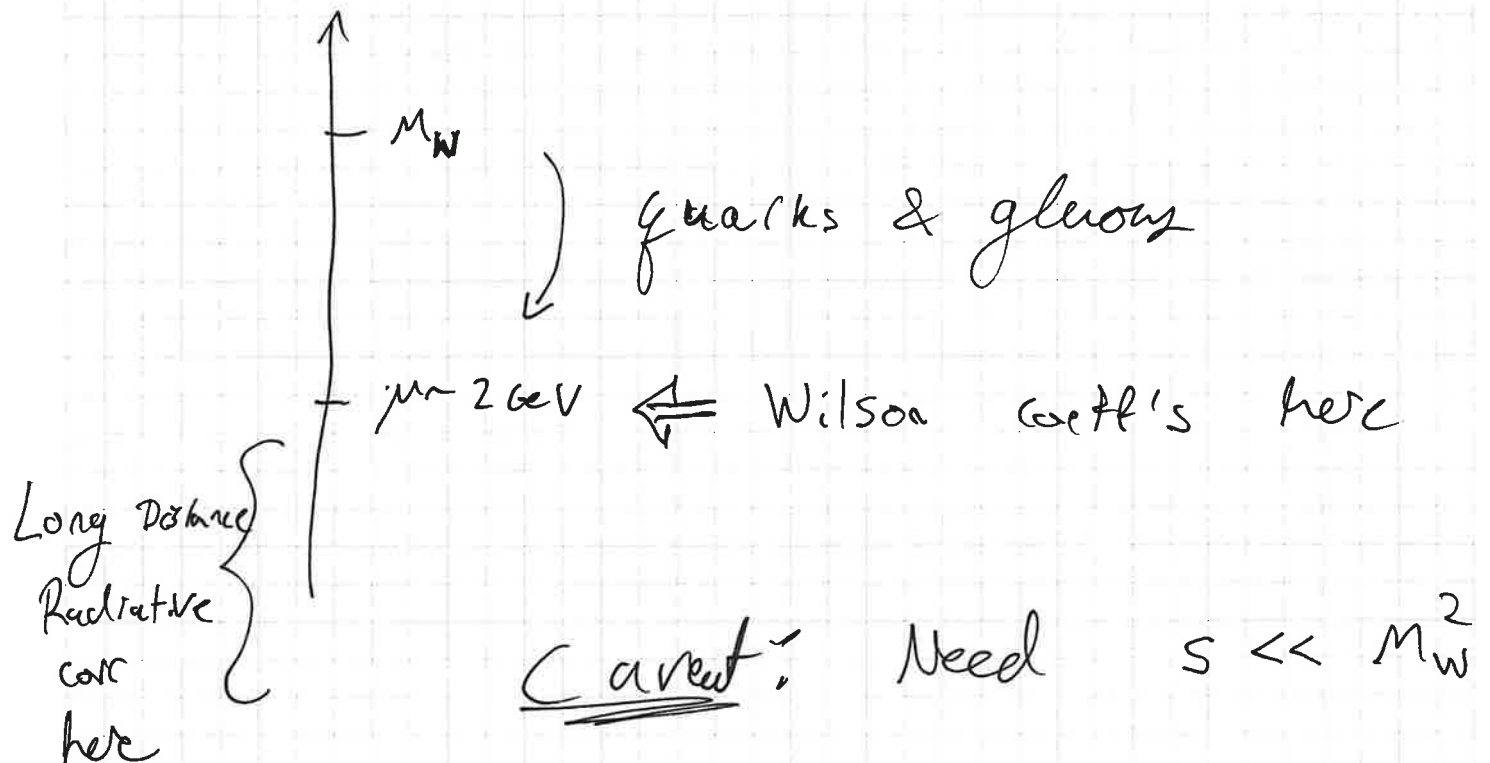 M_W
quarks & gluons
μ ~ 2 GeV ⇐ Wilson coeff's here
Long Distance
Radiative
corr
here
Caveat: Need s << M_W^2